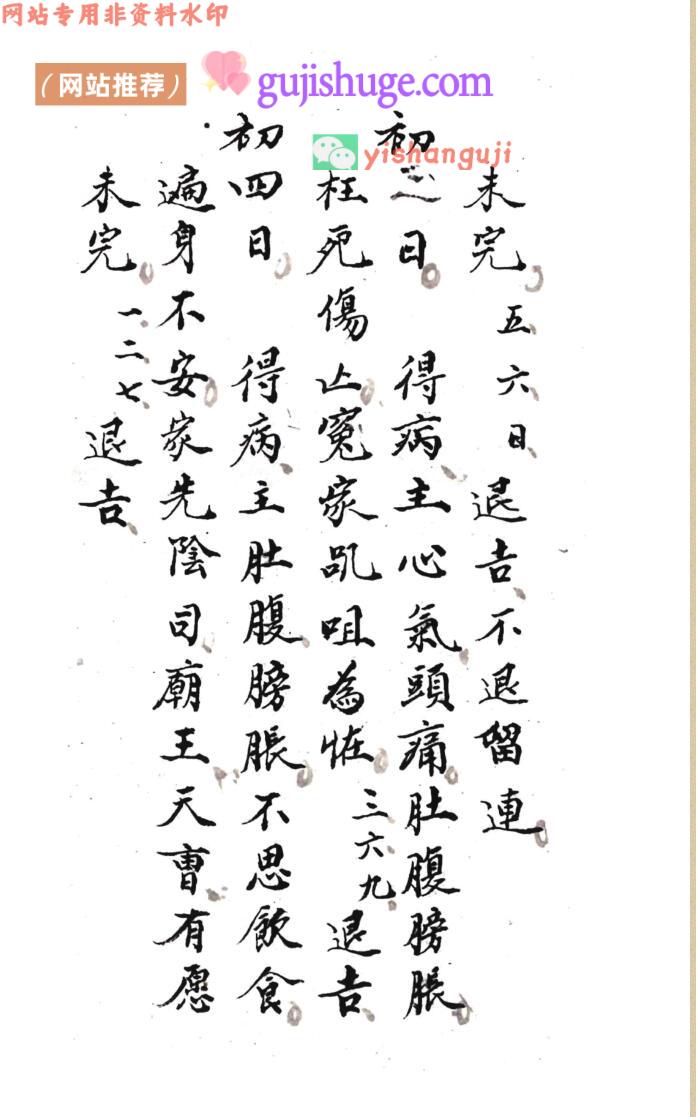 网站专用非资料水印
（网站推荐）
gujishuge.com
yishanguji
未完五六日退吉不退留連
初三日 得病主心氣頭痛肚腹膀脹
枉死傷亡冤家咒咀為怪三六九退吉
初四日 得病主肚腹膀脹不思飲食
遍身不安家先陰司廟王天曹有愿
未完一二七退吉